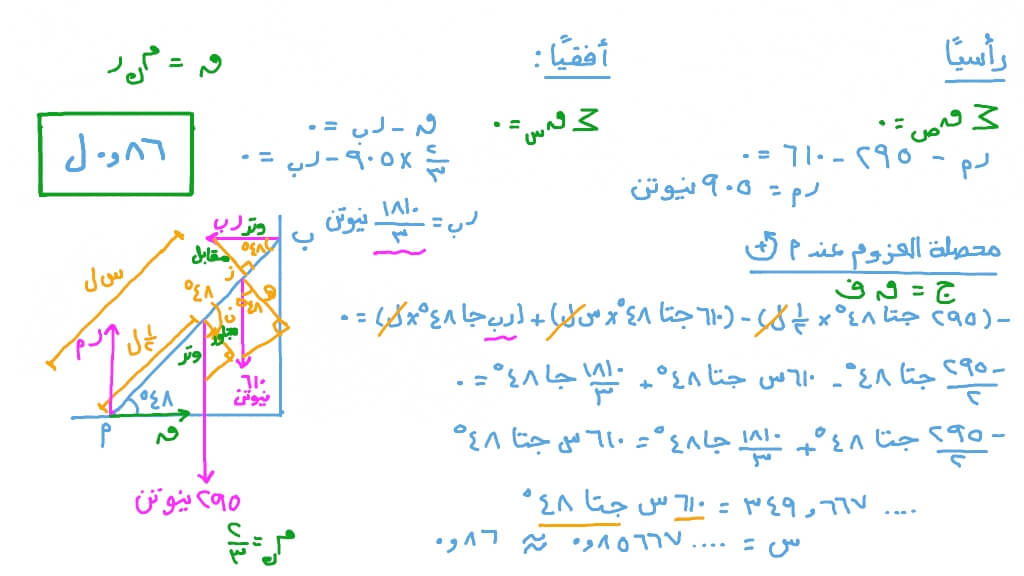 رأسيًّا
Σ ق ص = ٠
ر م - ٢٩٥ - ٦١٠ = ٠
ر م = ٩٠٥ نيوتن
أفقيًّا :
Σ ق س = ٠
ق - ر ب = ٠
٢/٣ × ٩٠٥ - ر ب = ٠
ر ب = ١٨١٠/٣ نيوتن
ق = م ك ر
٠٫٨٦ ل
محصلة العزوم عند م +
ج = ق ف
-(٢٩٥ جتا ٤٨° × ١/٢ ل) - (٦١٠ جتا ٤٨° × س ل) + (ر ب جا ٤٨° × ل) = ٠
-٢٩٥/٢ جتا ٤٨° - ٦١٠ س جتا ٤٨° + ١٨١٠/٣ جا ٤٨° = ٠
-٢٩٥/٢ جتا ٤٨° + ١٨١٠/٣ جا ٤٨° = ٦١٠ س جتا ٤٨°
.... ٣٤٩٫٦٦٧ = ٦١٠ س جتا ٤٨°
س = .... ٠٫٨٥٦٦٧ ≈ ٠٫٨٦
ر ب
وتر
ب
٤٨°
مقابل
ز
س ل
٤٨°
ه
٤٨°
ن
مجاور
١/٢ ل
وتر
ر م
٦١٠
نيوتن
٤٨°
م
ق
٢٩٥ نيوتن
م ك = ٢/٣